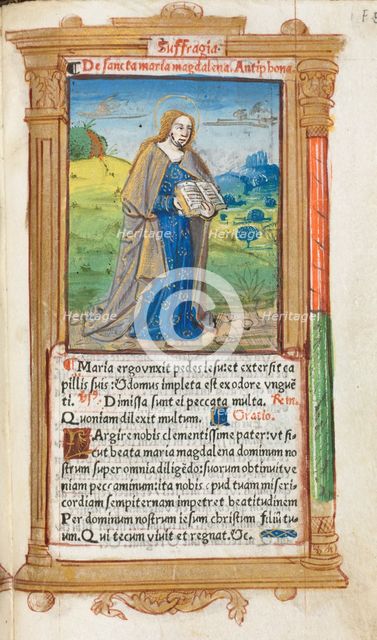 Suffragia.
¶ De sancta maria magdalena. Antiphona
¶ Maria ergo vnxit pedes iesu et extersit ca
pillis suis: & domus impleta est ex odore vngue
ti. Dimissa sunt ei peccata multa. Resp̄.
Quoniam dilexit multum. Oratio.
Largire nobis clementissime pater: vt si
cut beata maria magdalena dominum no
strum super omnia diligēdo: suorum obtinuit ve
niam peccaminum: ita nobis apud tuam miseri
cordiam sempiternam impetret beatitudinem
Per dominum nostrum iesum christum filiū tu
um. Qui tecum viuit et regnat. &c.
Heritage
Heritage
Heritage
Heritage
Heritage
Heritage